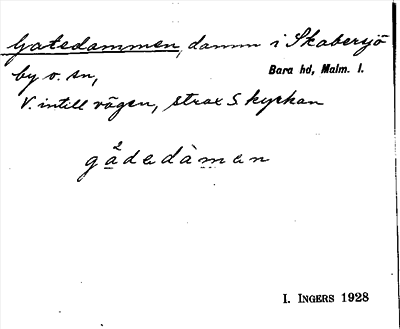 Gatedammen, damm i Skabersjö
by o. sn,
Bara hd, Malm. l.
V. intill vägen, strax S. kyrkan
gådadàman
I. INGERS 1928